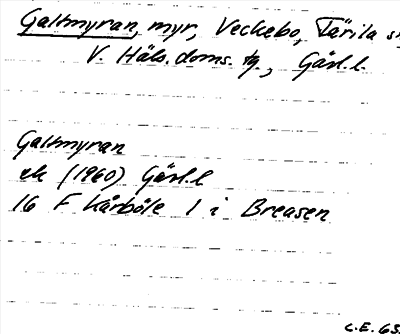 Galtmyran, myr, Veckebo, Färila s
V. Häls. doms. tg., Gävl. l.
Galtmyran
ek (1960) Gävl. l
16 F Kårböle 1 i Breasen
C.E. 65